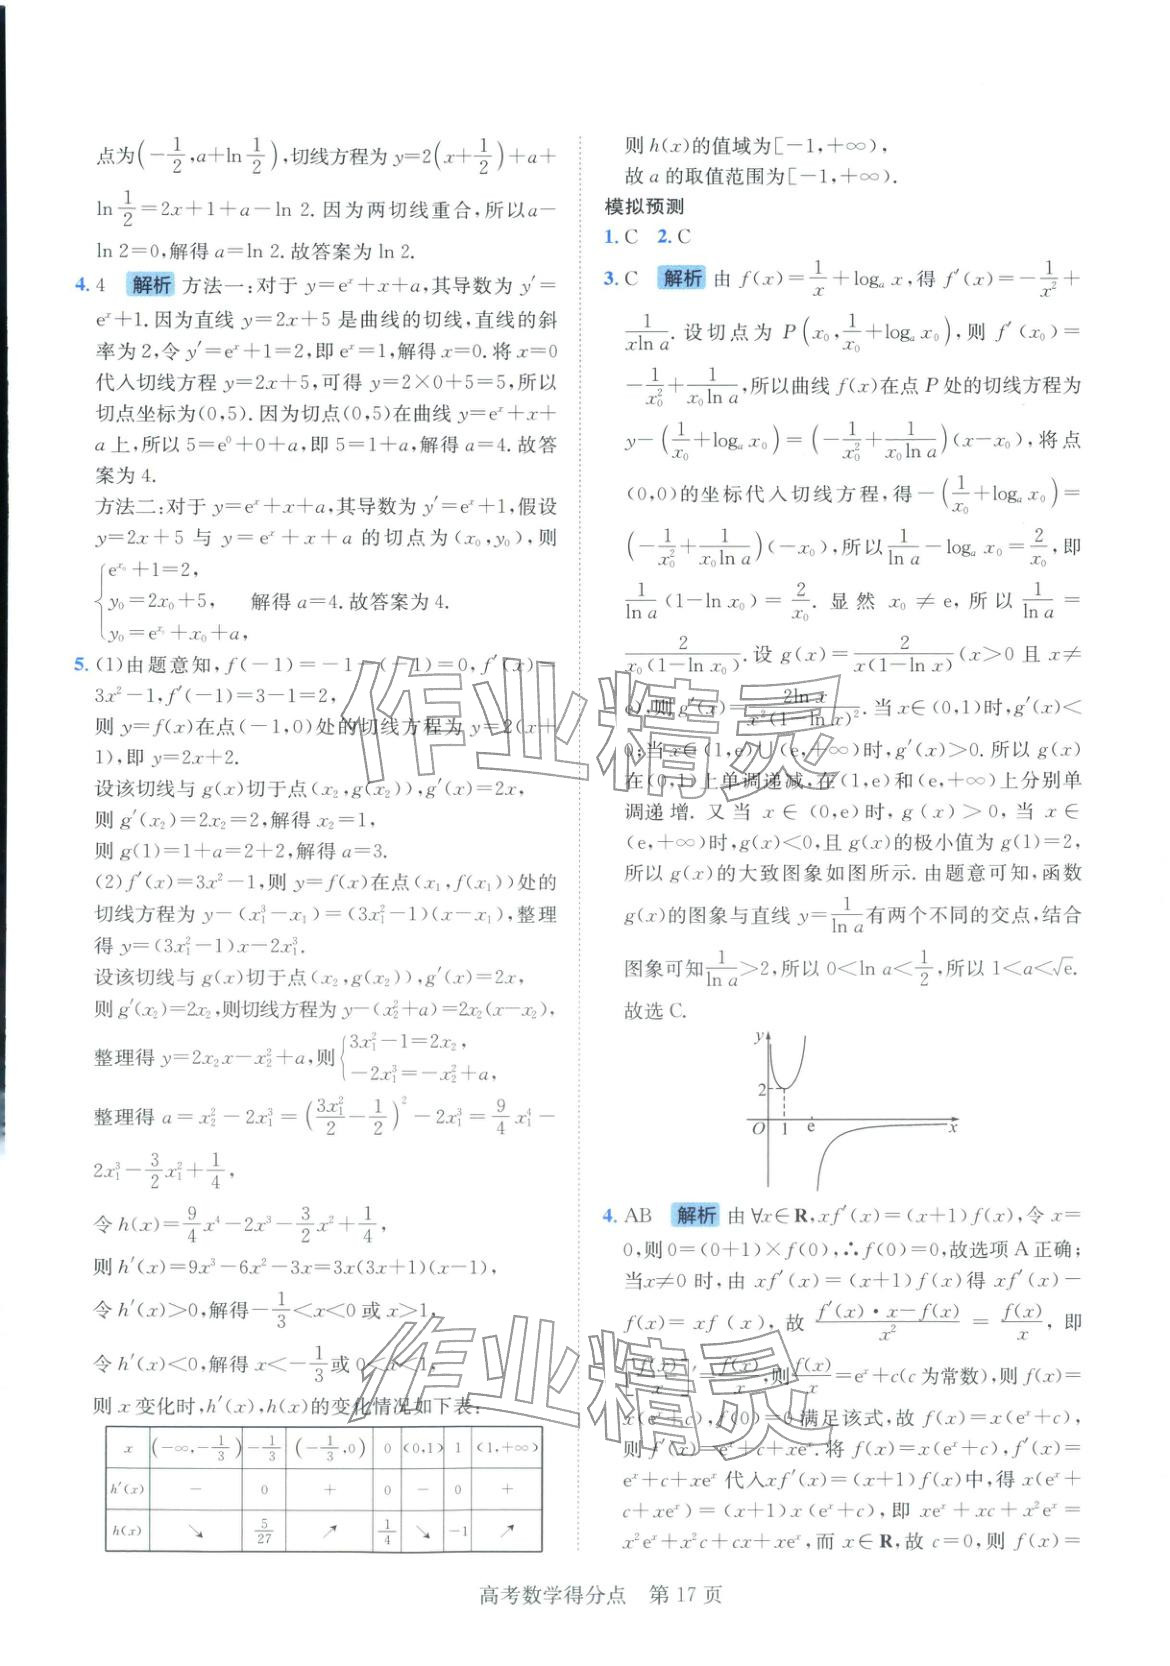 点为(-1/2,a+ln 1/2),切线方程为 y=2(x+1/2)+a+
ln 1/2=2x+1+a-ln 2.因为两切线重合,所以a-
ln 2=0,解得 a=ln 2.故答案为 ln 2.
4. 4 解析 方法一:对于 y=eˣ+x+a,其导数为 y′=
eˣ+1.因为直线 y=2x+5 是曲线的切线,直线的斜
率为2,令 y′=eˣ+1=2,即 eˣ=1,解得 x=0.将 x=0
代入切线方程 y=2x+5,可得 y=2×0+5=5,所以
切点坐标为(0,5).因为切点(0,5)在曲线 y=eˣ+x+
a 上,所以 5=e⁰+0+a,即 5=1+a,解得 a=4.故答
案为 4.
方法二:对于 y=eˣ+x+a,其导数为 y′=eˣ+1,假设
y=2x+5 与 y=eˣ+x+a 的切点为(x₀,y₀),则
{e^(x₀)+1=2,
y₀=2x₀+5, 解得 a=4.故答案为 4.
y₀=e^(x₀)+x₀+a,
5. (1)由题意知,f(-1)=-1-(-1)=0,f′(x)=
3x²-1,f′(-1)=3-1=2,
则 y=f(x)在点(-1,0)处的切线方程为 y=2(x+
1),即 y=2x+2.
设该切线与 g(x)切于点(x₂,g(x₂)),g′(x)=2x,
则 g′(x₂)=2x₂=2,解得 x₂=1,
则 g(1)=1+a=2+2,解得 a=3.
(2)f′(x)=3x²-1,则 y=f(x)在点(x₁,f(x₁))处的
切线方程为 y-(x₁³-x₁)=(3x₁²-1)(x-x₁),整理
得 y=(3x₁²-1)x-2x₁³.
设该切线与 g(x)切于点(x₂,g(x₂)),g′(x)=2x,
则 g′(x₂)=2x₂,则切线方程为 y-(x₂²+a)=2x₂(x-x₂),
整理得 y=2x₂x-x₂²+a,则{3x₁²-1=2x₂,
-2x₁³=-x₂²+a,
整理得 a=x₂²-2x₁³=(3x₁²/2-1/2)²-2x₁³=9/4x₁⁴-
2x₁³-3/2x₁²+1/4,
令 h(x)=9/4x⁴-2x³-3/2x²+1/4,
则 h′(x)=9x³-6x²-3x=3x(3x+1)(x-1),
令 h′(x)>0,解得-1/3<x<0 或 x>1,
令 h′(x)<0,解得 x<-1/3或 0<x<1,
则 x 变化时,h′(x),h(x)的变化情况如下表:
x (-∞,-1/3) -1/3 (-1/3,0) 0 (0,1) 1 (1,+∞)
h′(x) - 0 + 0 - 0 +
h(x) ↘ 5/27 ↗ 1/4 ↘ -1 ↗
则 h(x)的值域为[-1,+∞),
故 a 的取值范围为[-1,+∞).
模拟预测
1. C 2. C
3. C 解析 由 f(x)=1/x+logₐ x,得 f′(x)=-1/x²+
1/(xln a).设切点为 P(x₀,1/x₀+logₐ x₀),则 f′(x₀)=
-1/x₀²+1/(x₀ln a),所以曲线 f(x)在点 P 处的切线方程为
y-(1/x₀+logₐ x₀)=(-1/x₀²+1/(x₀ln a))(x-x₀),将点
(0,0)的坐标代入切线方程,得-(1/x₀+logₐ x₀)=
(-1/x₀²+1/(x₀ln a))(-x₀),所以1/ln a-logₐ x₀=2/x₀,即
1/ln a(1-ln x₀)=2/x₀.显然 x₀≠e,所以1/ln a=
2/(x₀(1-ln x₀)).设 g(x)=2/(x(1-ln x))(x>0 且 x≠
e),则 g′(x)=2ln x/(x²(1-ln x)²).当 x∈(0,1)时,g′(x)<
0;当 x∈(1,e)∪(e,+∞)时,g′(x)>0.所以 g(x)
在(0,1)上单调递减,在(1,e)和(e,+∞)上分别单
调递增.又当 x∈(0,e)时,g(x)>0,当 x∈
(e,+∞)时,g(x)<0,且 g(x)的极小值为 g(1)=2,
所以 g(x)的大致图象如图所示.由题意可知,函数
g(x)的图象与直线 y=1/ln a有两个不同的交点,结合
图象可知1/ln a>2,所以 0<ln a<1/2,所以 1<a<√e.
故选 C.
y
2
O 1 e x
4. AB 解析 由∀x∈R,xf′(x)=(x+1)f(x),令 x=
0,则 0=(0+1)×f(0),∴f(0)=0,故选项 A 正确;
当x≠0 时,由 xf′(x)=(x+1)f(x)得 xf′(x)-
f(x)=xf(x),故 (f′(x)·x-f(x))/x²=f(x)/x,即
(f(x)/x)′=f(x)/x,则f(x)/x=eˣ+c(c 为常数),则 f(x)=
x(eˣ+c),f(0)=0 满足该式,故 f(x)=x(eˣ+c),
则 f′(x)=eˣ+c+xeˣ.将 f(x)=x(eˣ+c),f′(x)=
eˣ+c+xeˣ 代入xf′(x)=(x+1)f(x)中,得 x(eˣ+
c+xeˣ)=(x+1)x(eˣ+c),即 xeˣ+xc+x²eˣ=
x²eˣ+x²c+cx+xeˣ,而 x∈R,故 c=0,则 f(x)=
高考数学得分点 第 17 页
作业精灵
作业精灵